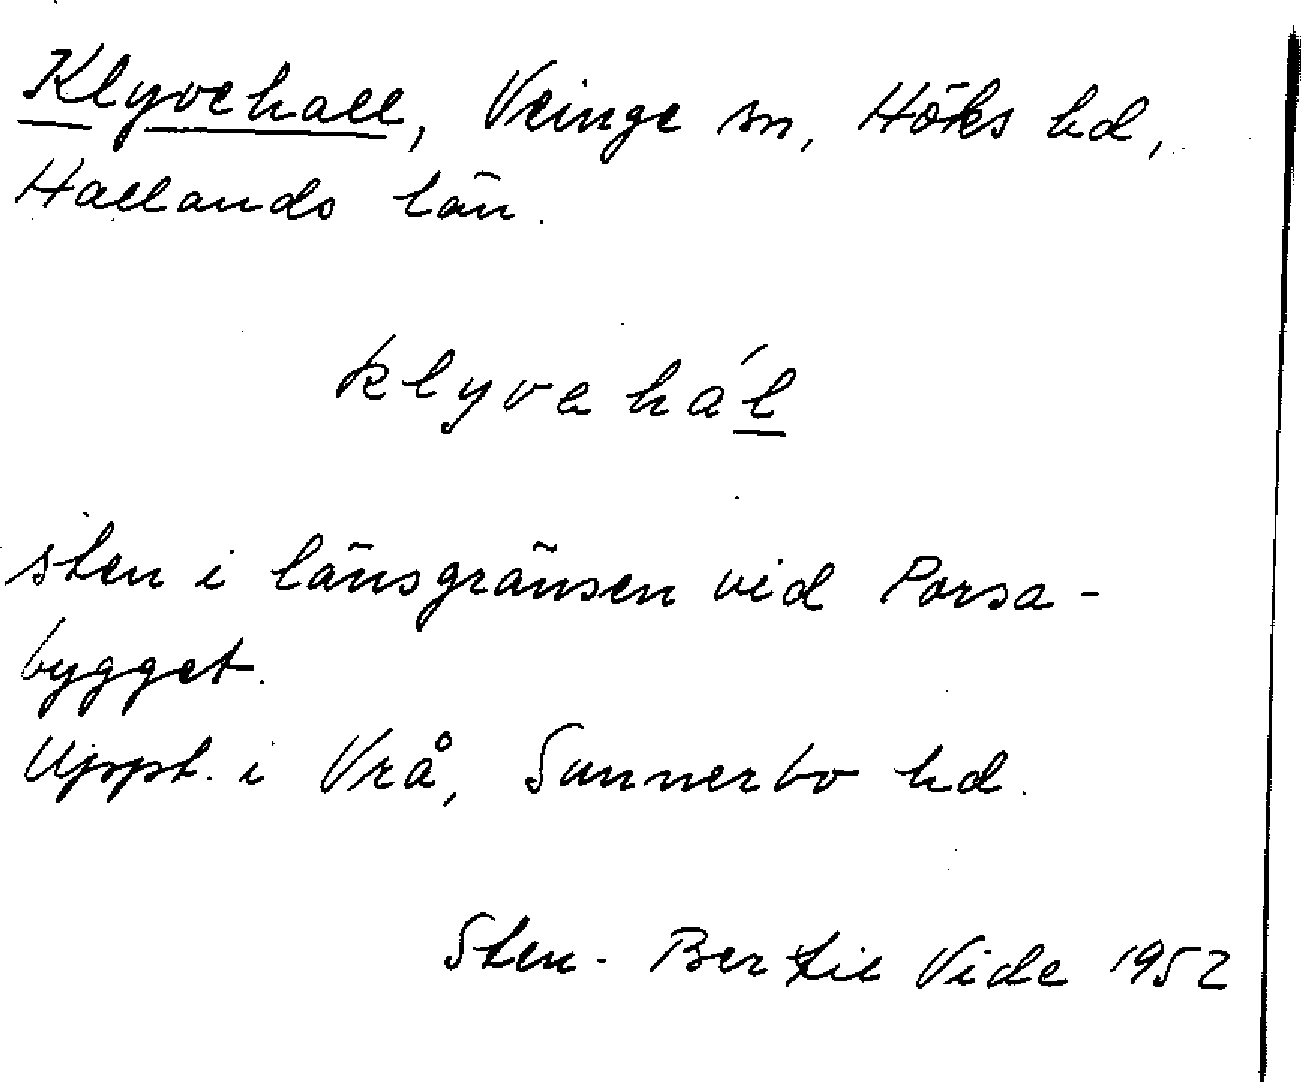 Klyvehall, Veinge sn, Höks hd,
Hallands län.
klyvehá́l
sten i länsgränsen vid Porsa-
bygget.
Uppt. i Vrå, Sunnerbo hd.
Sten-Bertil Vide 1952